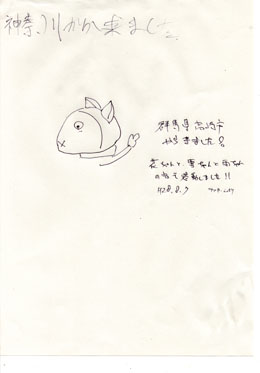 神奈川から来ました
群馬県高崎市
から来ました。
花ちゃんと、雪ちゃんと
感動しました!!
H28.8.7